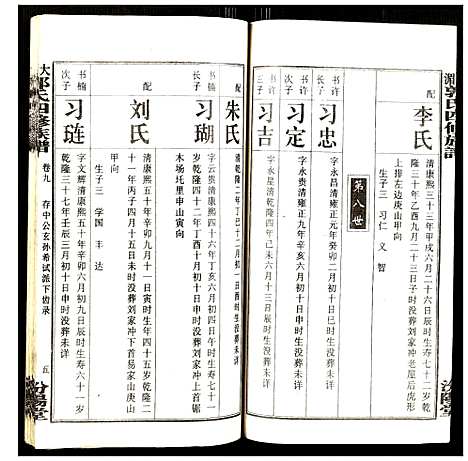 配
李氏
清康熙三十三年甲戌六月二十六日辰时生寿七十二岁乾
六月十三日子时没葬刘家冲老屋后虎形
上排左边庚山甲向
生子三 习仁 义 智
第八世
书 子
习忠
字永 清雍正元年癸卯二月初十日辰时生没葬未详
书 次子
习定
字永贵清雍正九年辛亥六月初六日子时生没葬未详
书 三子
习吉
字永星清乾隆四年己未六月十三日辰时生没葬未详
配
朱氏
酉时生没葬未详
书楠 长子
习瑚
字云 清康熙四十六年丁亥六月初四日午时生寿七十一
岁乾隆四十二年丁酉十月初十日申时没葬刘家冲上首锯
木场圫里申山寅向
配
刘氏
清康熙五十年辛卯九月十一日寅时生年四十五岁乾隆二
十一年丙子四月十五日未时没葬刘家冲下首易家山庚山
甲向
生子三 学国 丰 达
书楠 次子
习琏
字文 清康熙五十年辛卯六月初九日辰时生寿六十一岁
乾隆三十七年壬辰三月初十日申时没葬未详
大 郭氏四修族谱
卷九 存中公玄孙希试派下齿录
五
汾阳堂